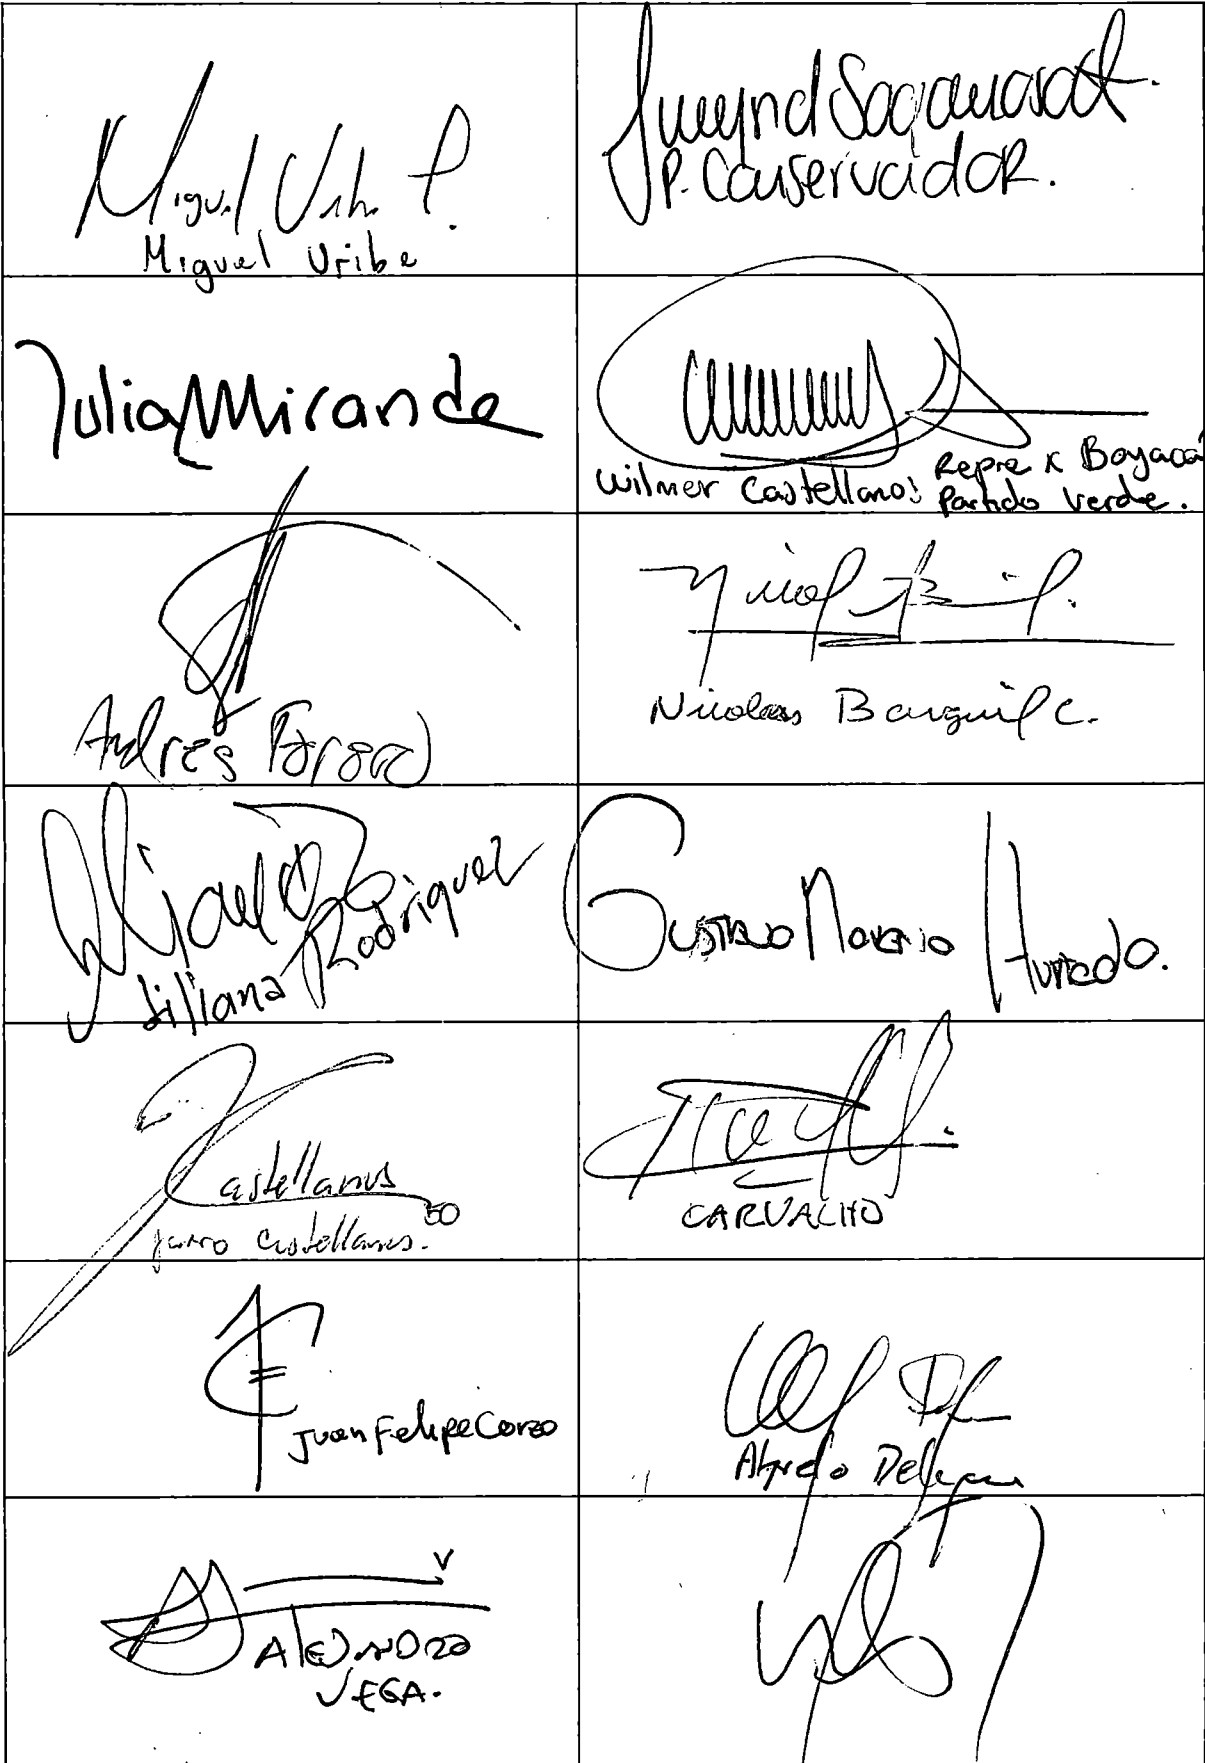 Miguel Uribe P.
Miguel Uribe
P. Conservador.
Julia Miranda
Wilmer Castellanos Repre x Boyacá
Partido Verde.
Andres Forero
Nicolas Barguil C.
Liliana Rodriguez
Gustavo Moreno Hurtado.
Castellanos
Jairo Castellanos.
CARVALHO
Juan Felipe Corzo
Alfredo Deluque
V
ALEJANDRO
VEGA.